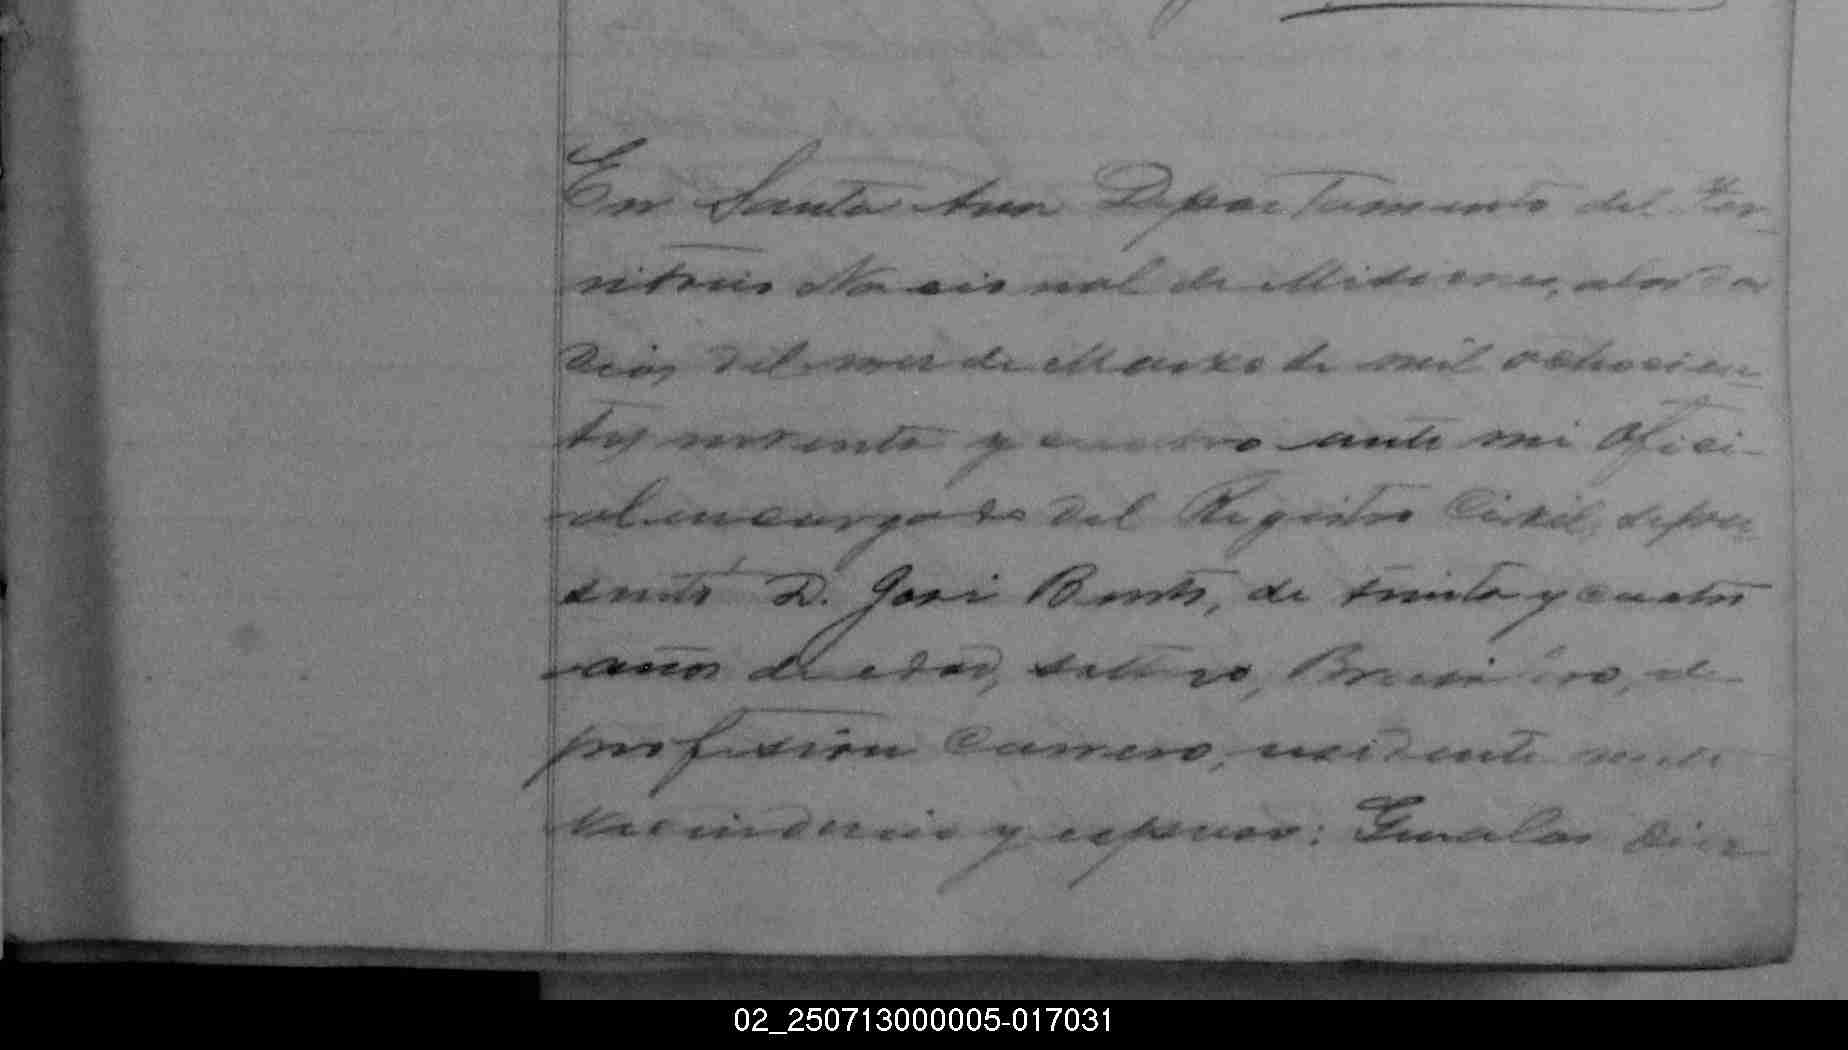 En Santa Ana Departamento del Ter-
ritorio Nacional de Misiones, a los
dias del mes de Marzo de mil ochocien-
tos noventa y cuatro ante mi Ofici-
al encargado del Registro Civil, se pre-
sentó D. José Bento, de treinta y cuatro
años de edad, soltero, Brasilero, de
profesión Carrero, residente en esta
vecindario y expuso: Que a las diez
02_250713000005-017031